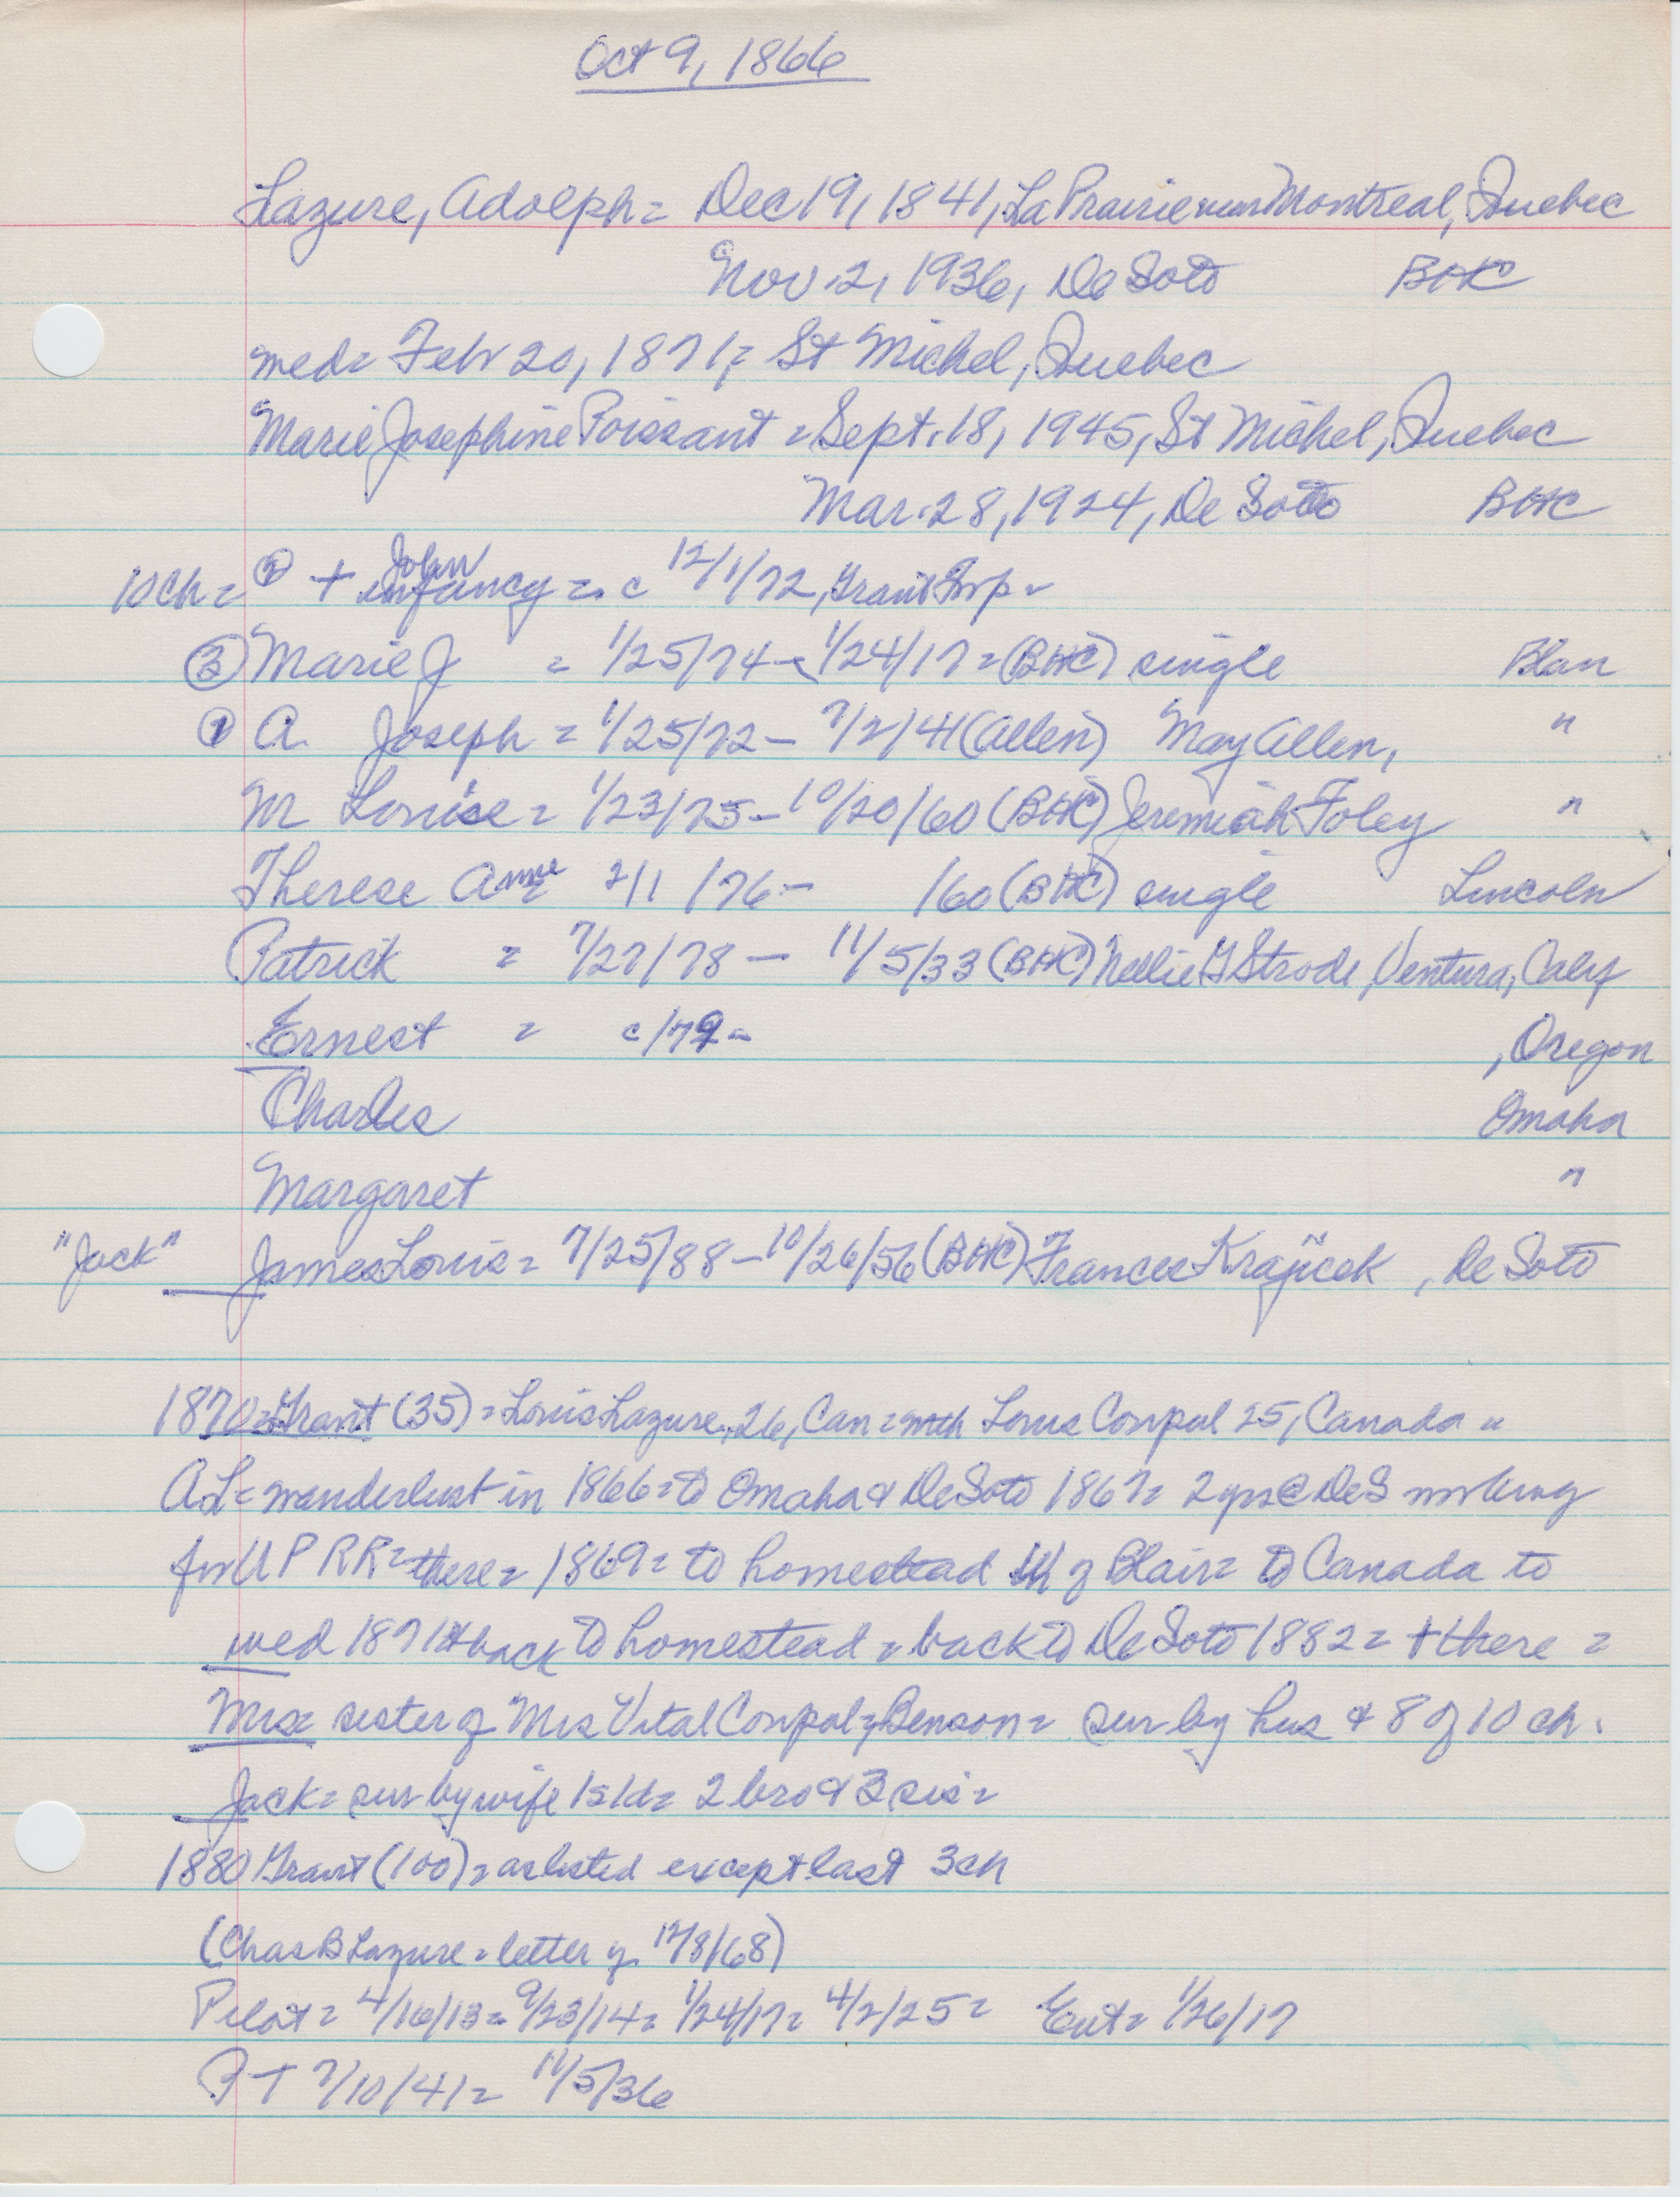 Oct 9, 1866
Lazure, Adolph = Dec 19, 1841, La Prairie near Montreal, Quebec
Nov. 2, 1936, De Soto BHC
wed = Feb 20, 1871, = St Michel, Quebec
Marie Josephine Poissant = Sept. 18, 1945, St Michel, Quebec
Mar. 28, 1924, De Soto BHC
10 ch = ② + John infancy = c 12/1/72, Grant Twp =
③ Marie J = 1/25/74 - 1/24/17 = (BHC) single Blair
① A. Joseph = 1/25/72 - 7/2/41 (Allen) May Allen, "
M Louise = 1/23/75 - 10/20/60 (BHC) Jeremiah Foley "
Therese Anne 2/1/76 - /60 (BHC) single Lincoln
Patrick = 7/27/78 - 11/5/33 (BHC) Nellie G Strode, Ventura, Calif
Ernest = c/79 - , Oregon
Charles Omaha
Margaret "
"Jack" James Louis = 7/25/88 - 10/26/56 (BHC) Frances Krajicek, De Soto
1870 = Grant (35) = Louis Lazure, 26, Can = with Louis Conpal 25, Canada =
AL = wanderlust in 1866 = to Omaha & DeSoto 1867 = 2 yrs @ DeS working
for U P RR = there = 1869 = to homestead W of Blair = to Canada to
wed 1871 & back to homestead = back to De Soto 1882 = + there =
Mrs = sister of Mrs Vital Conpal of Benson = sur by hus & 8 of 10 ch.
Jack = sur by wife 1s 1d = 2 bro & 3 sis =
1880 Grant (100) = as listed except last 3 ch
(Chas B Lazure = letter of 12/8/68)
Pilot = 4/16/13 = 9/23/14 = 1/24/17 = 4/2/25 = Ent = 1/26/17
P T 7/10/41 = 11/5/36